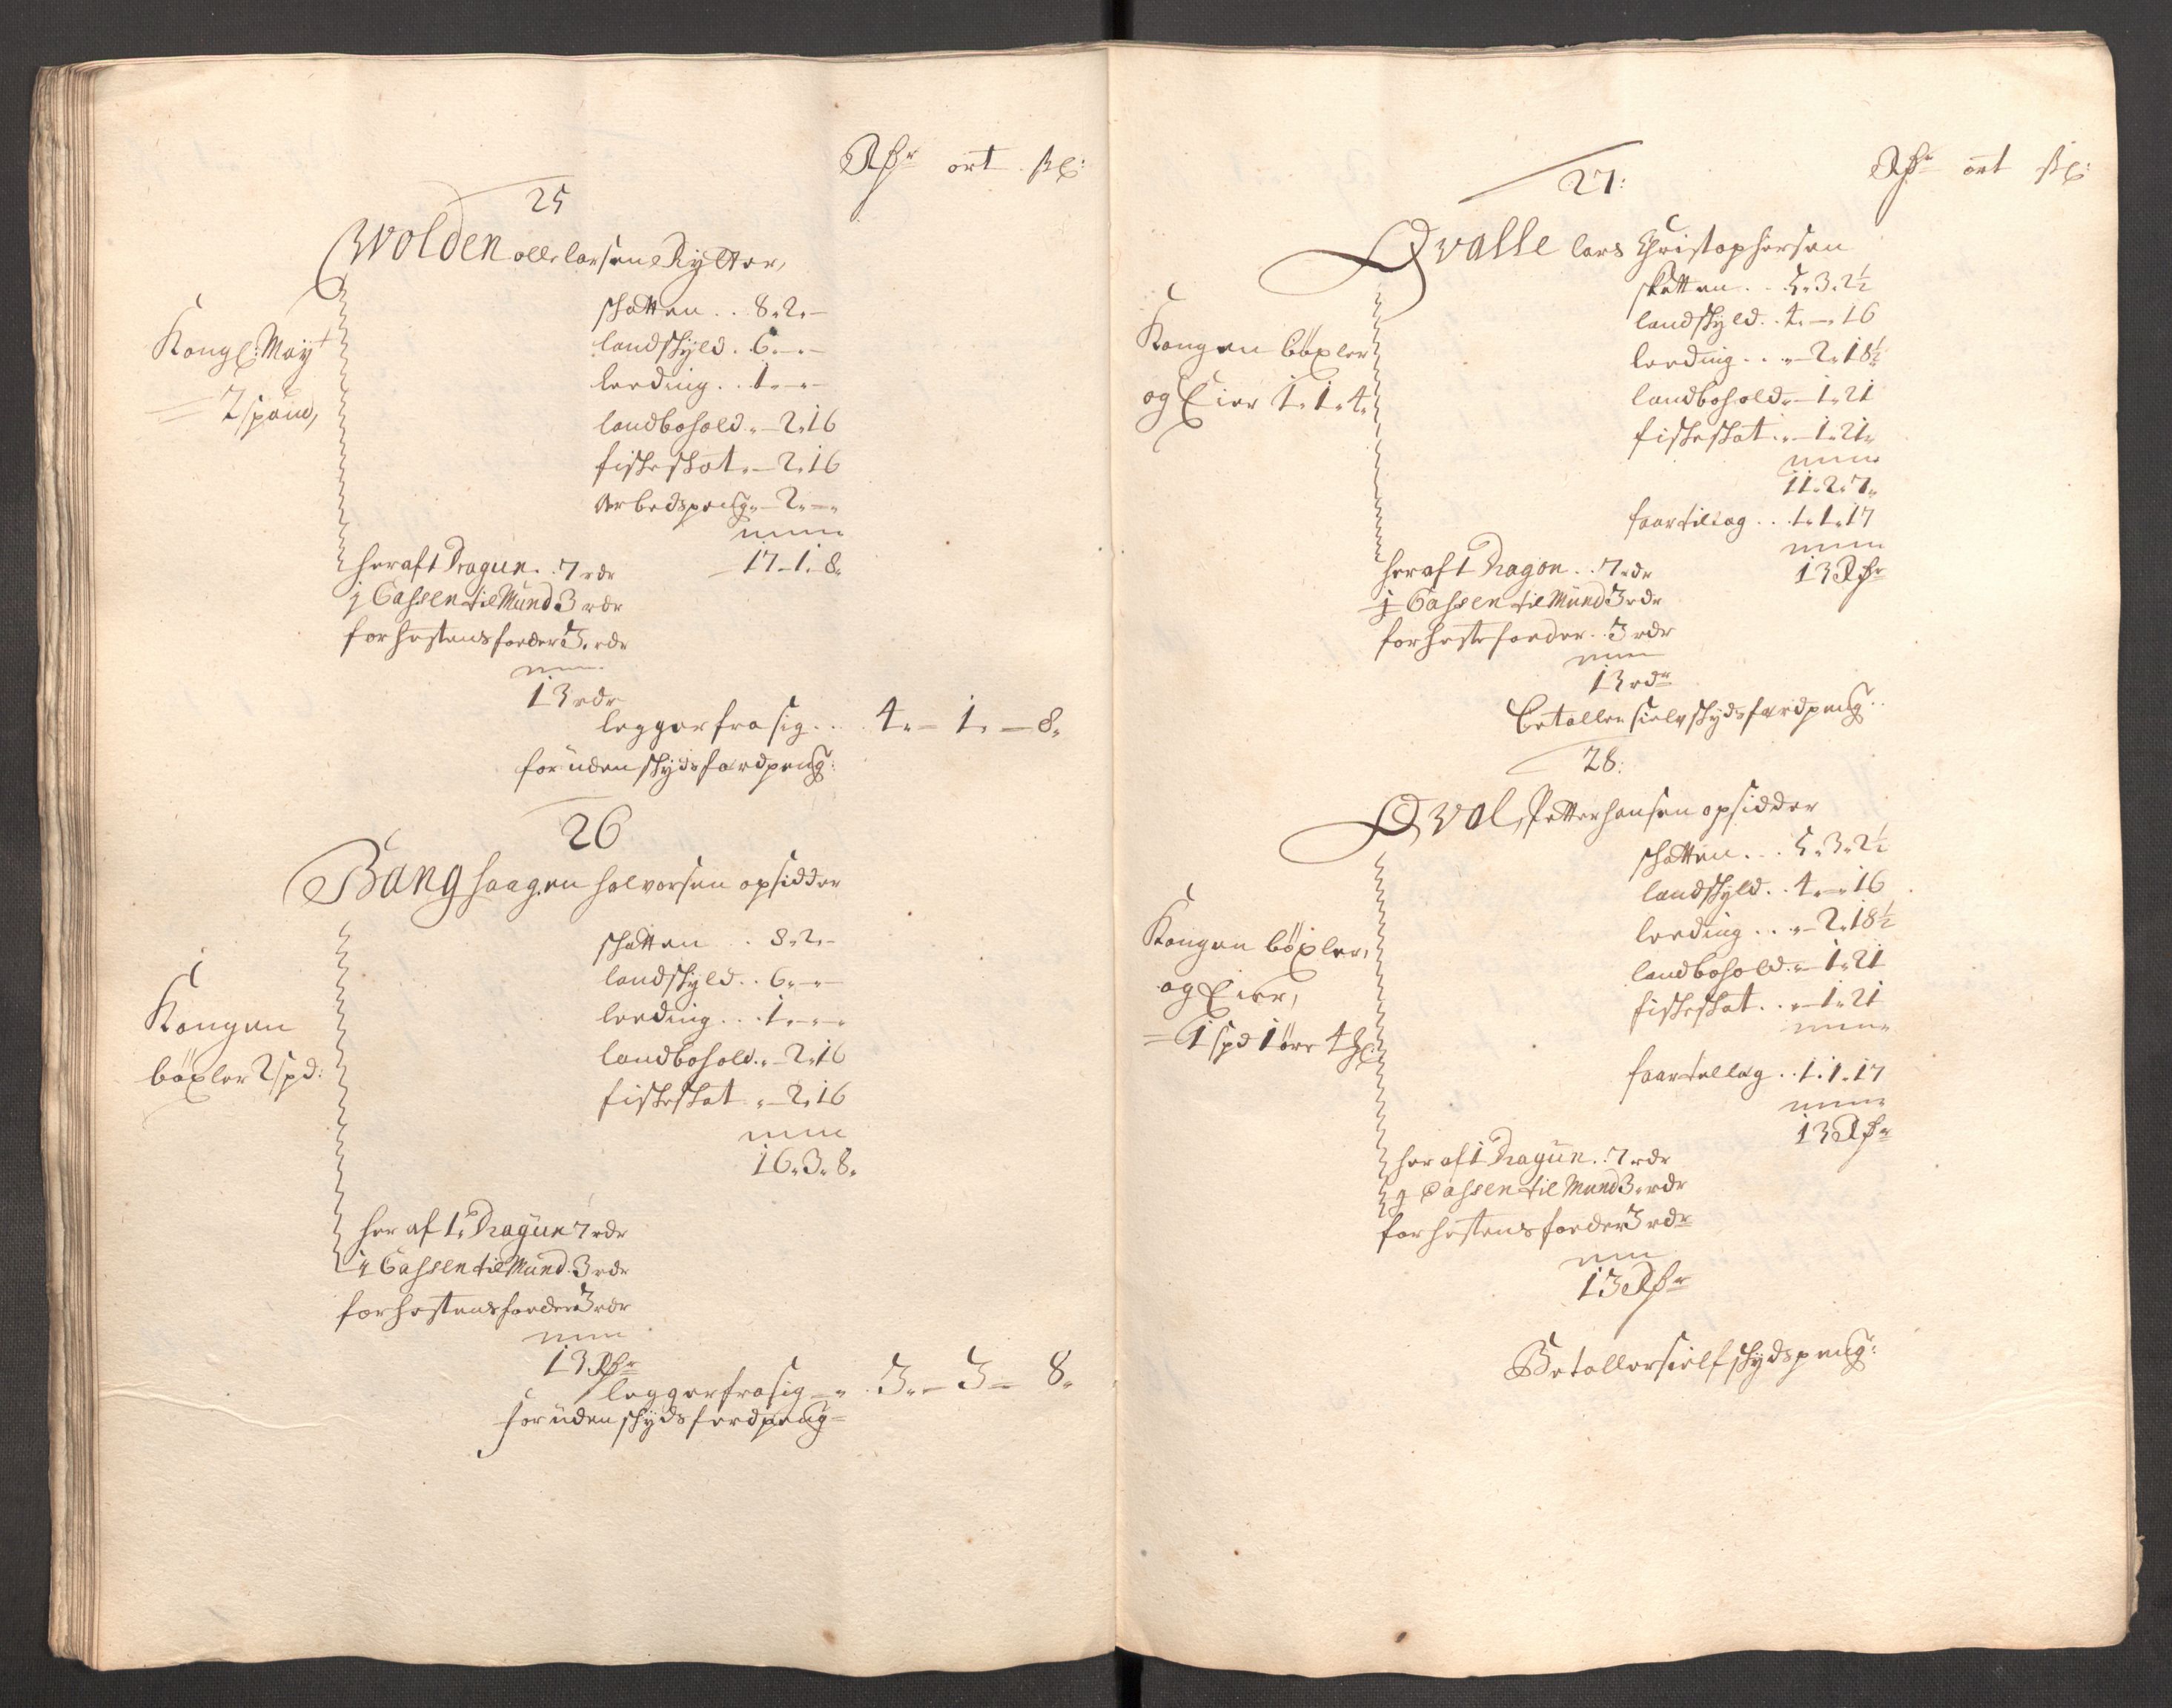 Rdr ort sk:
25
Wolden olle larsen Rytter,
Kongl: Mayt
2 spand,
skatten . . 8. 2. –
landskyld . 6. – . –
leeding . . 1. – . –
landbohold . – 2. 16
fiskeskat . – 2. 16
Arbedspeng . – 2. – .
17 – 1. 8.
her af 1 Dragun . . 7 rdr
j Cassen til Mund 3 rdr
for hestens foeder 3. rdr
13 rdr
legger fra sig . . 4. – 1. – 8.
foruden skyds færdpeng:
26
Bang haagen halvorsen opsidder
Kongen
bøxler 2 spd:
skatten . . 8. 2. –
landskyld . . 6. – . –
leeding . . . 1. – . –
landbohold . – 2. 16
fiskeskat . – 2. 16
16. 3. 8.
her af 1. Dragun 7 rdr
i Cassen til Mund . 3 rdr
for hestens foeder 3 rdr
13 Rdr
legger fra sig – . 3. – 3 – 8.
foruden skyds ferdpeng –
Rdr ort sk:
27:
Qvalle lars Christophersen
Kongen bøxler
og Eier 1. 1. 4.
skatten . . 5. 3. 2½
landskyld . . 4. – . 16
leeding . . . – 2. 18½
landbohold . – 1. 21
fiskeskat . . – 1. 21.
11. 2. 7.
faar tillag . . 1. 1. 17
13 Rdr
her af 1 Dragon . . 7 rdr
j Cassen til Mund 3 rdr
for heste foeder . . 3 rdr
13 rdr
betaller sielv skyds færdpeng . .
28:
Qval, Petter hansen opsidder
Kongen bøxler,
og Eier,
= 1 spd 1 øre 4
skatten . . . 5. 3. 2½
landskyld . . 4. – . 16
leeding . . . – 2. 18½
landbohold . – 1. 21
fiskeskat . . – 1. 21
faar tellag . . 1. 1. 17
13 Rdr
her af 1 Dragun . . 7 rdr
j Cassen til Mund 3. rdr
for hestens foeder 3 rdr
13 Rdr
Betaller sielf skydspeng: